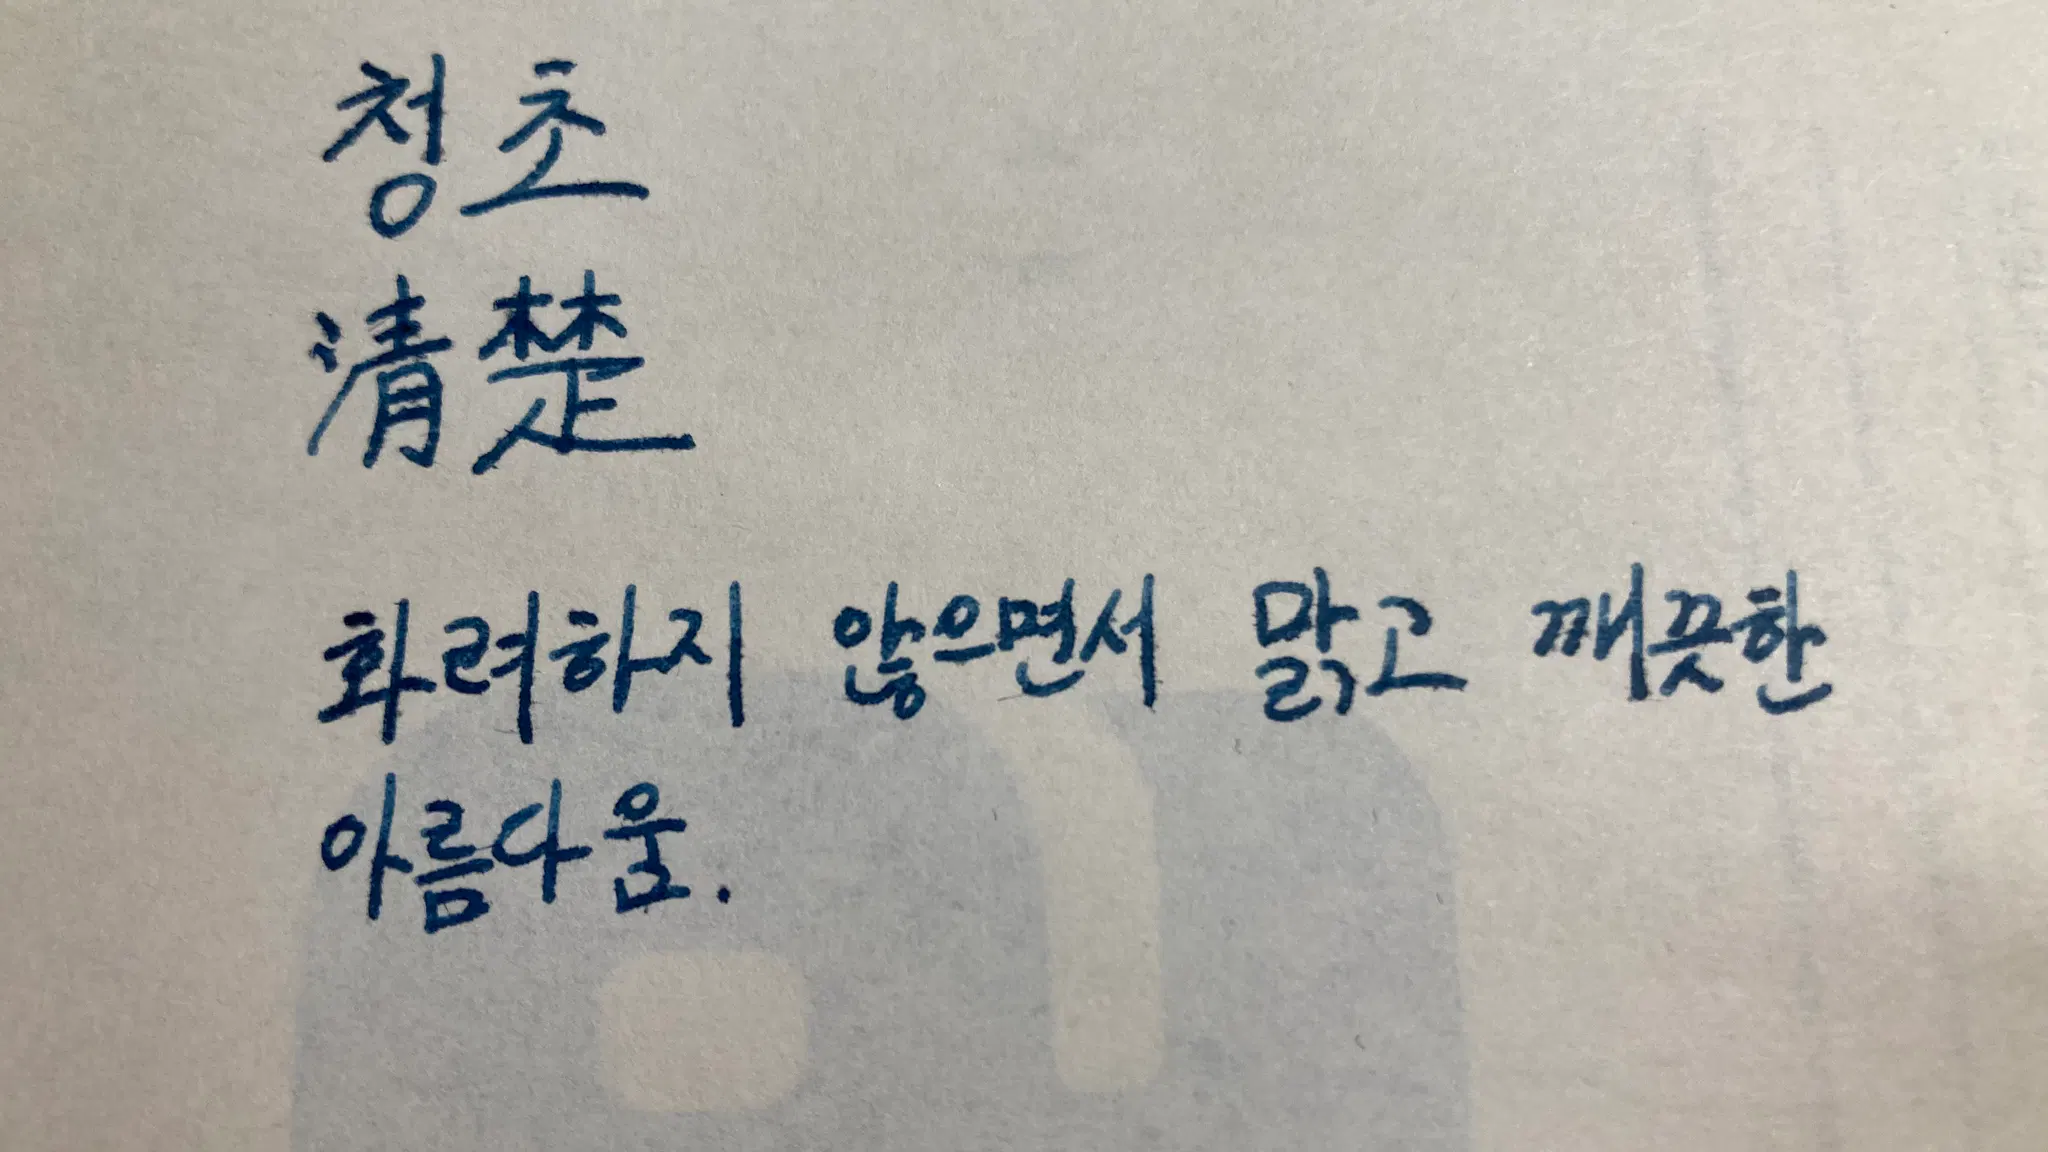 청초
清楚
화려하지 않으면서 맑고 깨끗한
아름다움.